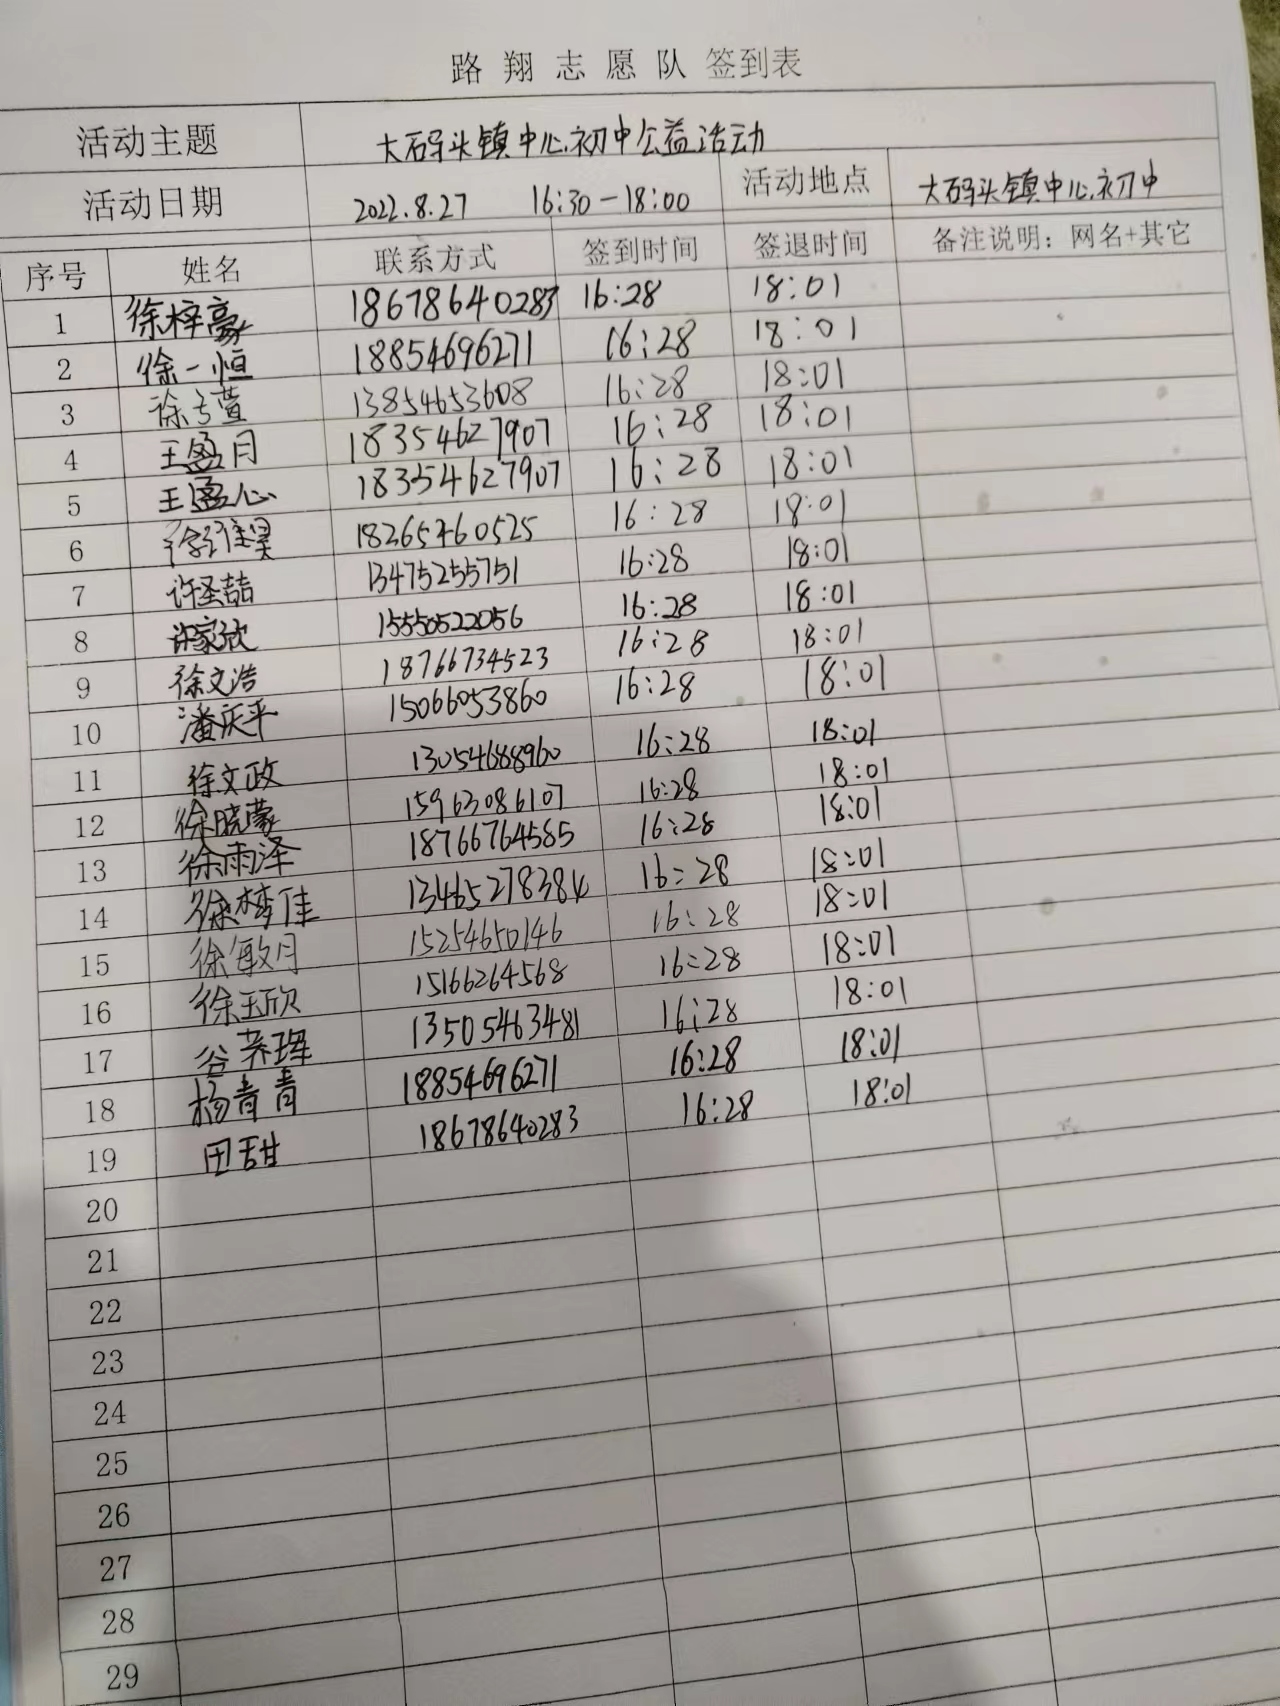 路翔志愿队 签到表
活动主题 大码头镇中心初中公益活动
活动日期 2022.8.27 16:30-18:00 活动地点 大码头镇中心初中
序号 姓名 联系方式 签到时间 签退时间 备注说明：网名+其它
1 徐梓豪 18678640283 16:28 18:01
2 徐一恒 18854696271 16:28 18:01
3 徐萱 13854653608 16:28 18:01
4 王盈月 18354627907 16:28 18:01
5 王盈心 18354627907 16:28 18:01
6 徐昊 18265460525 16:28 18:01
7 许圣喆 13475255751 16:28 18:01
8 许家欣 15550522056 16:28 18:01
9 徐文浩 18766734523 16:28 18:01
10 潘庆平 15066053860 16:28 18:01
11 徐文政 13054688960 16:28 18:01
12 徐晓蒙 15963086107 16:28 18:01
13 徐雨泽 18766764585 16:28 18:01
14 徐梦佳 13465278384 16:28 18:01
15 徐敏月 15254650146 16:28 18:01
16 徐玉欣 15166264568 16:28 18:01
17 谷 13505463481 16:28 18:01
18 杨青青 18854696271 16:28 18:01
19 田甜 18678640283 16:28 18:01
20
21
22
23
24
25
26
27
28
29